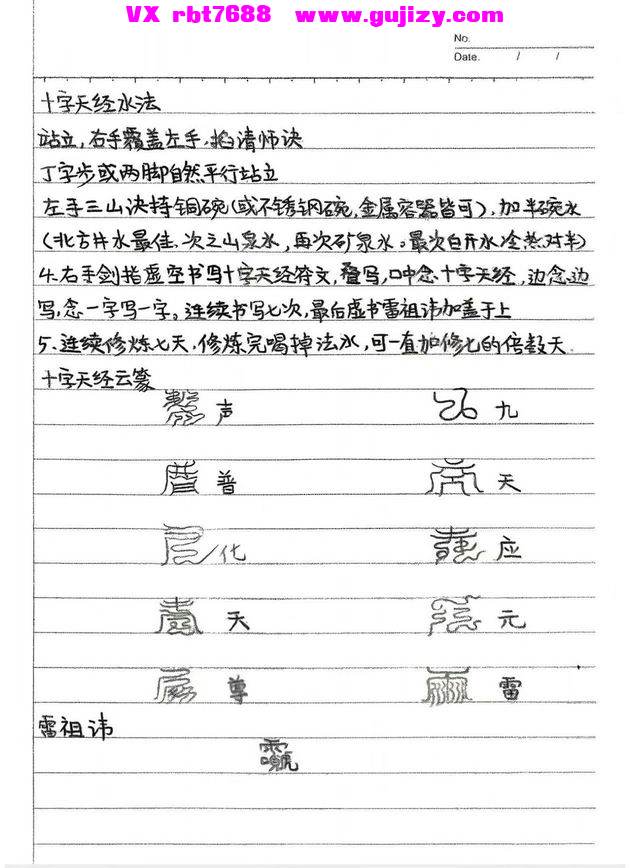 VX rbt7688 www.gujizy.com
No.
Date. / /
十字天经水法
站立,右手覆盖左手,掐请师诀
丁字步或两脚自然平行站立
左手三山诀持铜碗(或不锈钢碗,金属容器皆可),加半碗水
(北方井水最佳,次之山泉水,再次矿泉水。最次白开水冷热对半)
4.右手剑指虚空书写十字天经符文,叠写,口中念十字天经,边念边
写,念一字写一字。连续书写七次,最后虚书雷祖讳加盖于上
5.连续修炼七天,修炼完喝掉法水,可一直加修七的倍数天.
十字天经云篆
声 九
普 天
化 应
天 元
尊 雷
雷祖讳